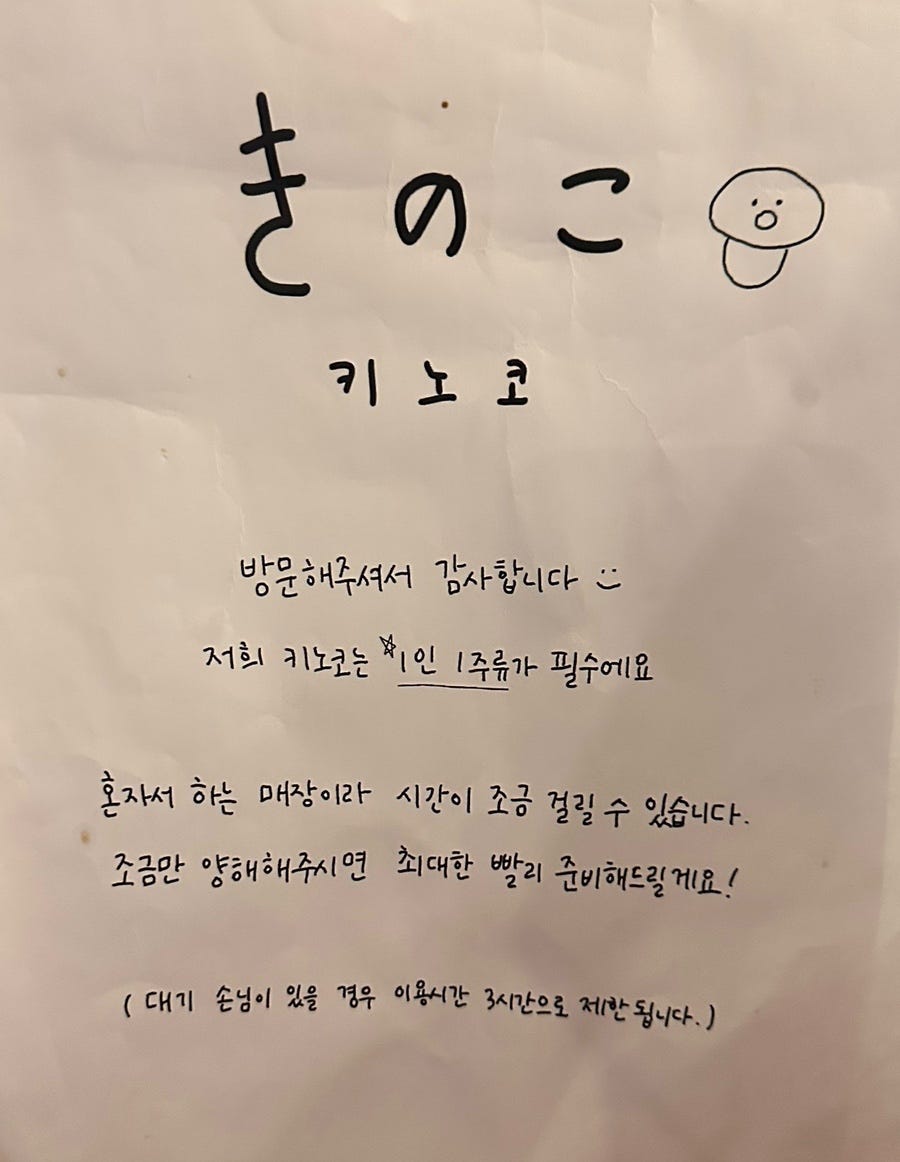 きのこ
키노코
방문해주셔서 감사합니다 :)
저희 키노코는 ☆1인 1주류가 필수에요
혼자서 하는 매장이라 시간이 조금 걸릴 수 있습니다.
조금만 양해해주시면 최대한 빨리 준비해드릴게요!
(대기 손님이 있을 경우 이용시간 3시간으로 제한됩니다.)